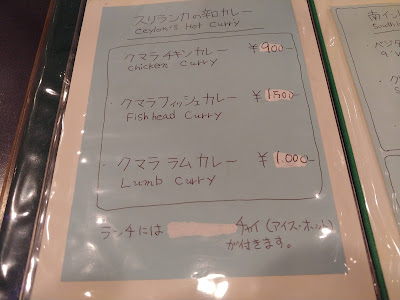 スリランカの辛口カレー
Ceylon's Hot Curry
クマラチキンカレー ¥900-
Chicken Curry
・クマラフィッシュカレー ¥1,500-
Fish head Curry
・クマラ ラムカレー ¥1,000-
Lumb Curry
ランチには チャイ(アイス・ホット)
が付きます。
南イン
South